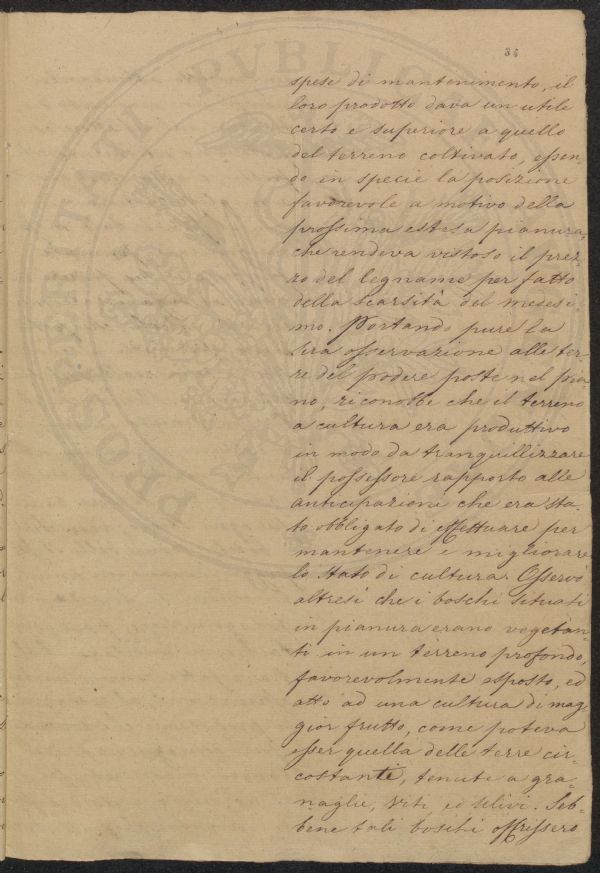 84
spese di mantenimento, il
loro prodotto dava un utile
certo e superiore a quello
del terreno coltivato, essen-
do in specie la posizione
favorevole a motivo della
prossima estesa pianura,
che rendeva vistoso il prez-
zo del legname per fatto
della scarsità del medesi
mo. Portando pure la
sua osservazione alle ter-
re del podere poste nel pia
no, riconobbe che il terreno
a cultura era produttivo
in modo da tranquillizzare
il possessore rapporto alle
anticipazioni che era sta-
to obbligato di effettuare per
mantenere e migliorare
lo stato di cultura. Osservò
altresì che i boschi situati
in pianura erano vegetan-
ti in un terreno profondo,
favorevolmente esposto, ed
atto ad una cultura di mag-
gior frutto, come poteva
esser quella delle terre cir-
costanti, tenute a gra-
naglie, Viti, ed Ulivi. Seb-
bene tali boschi offrissero